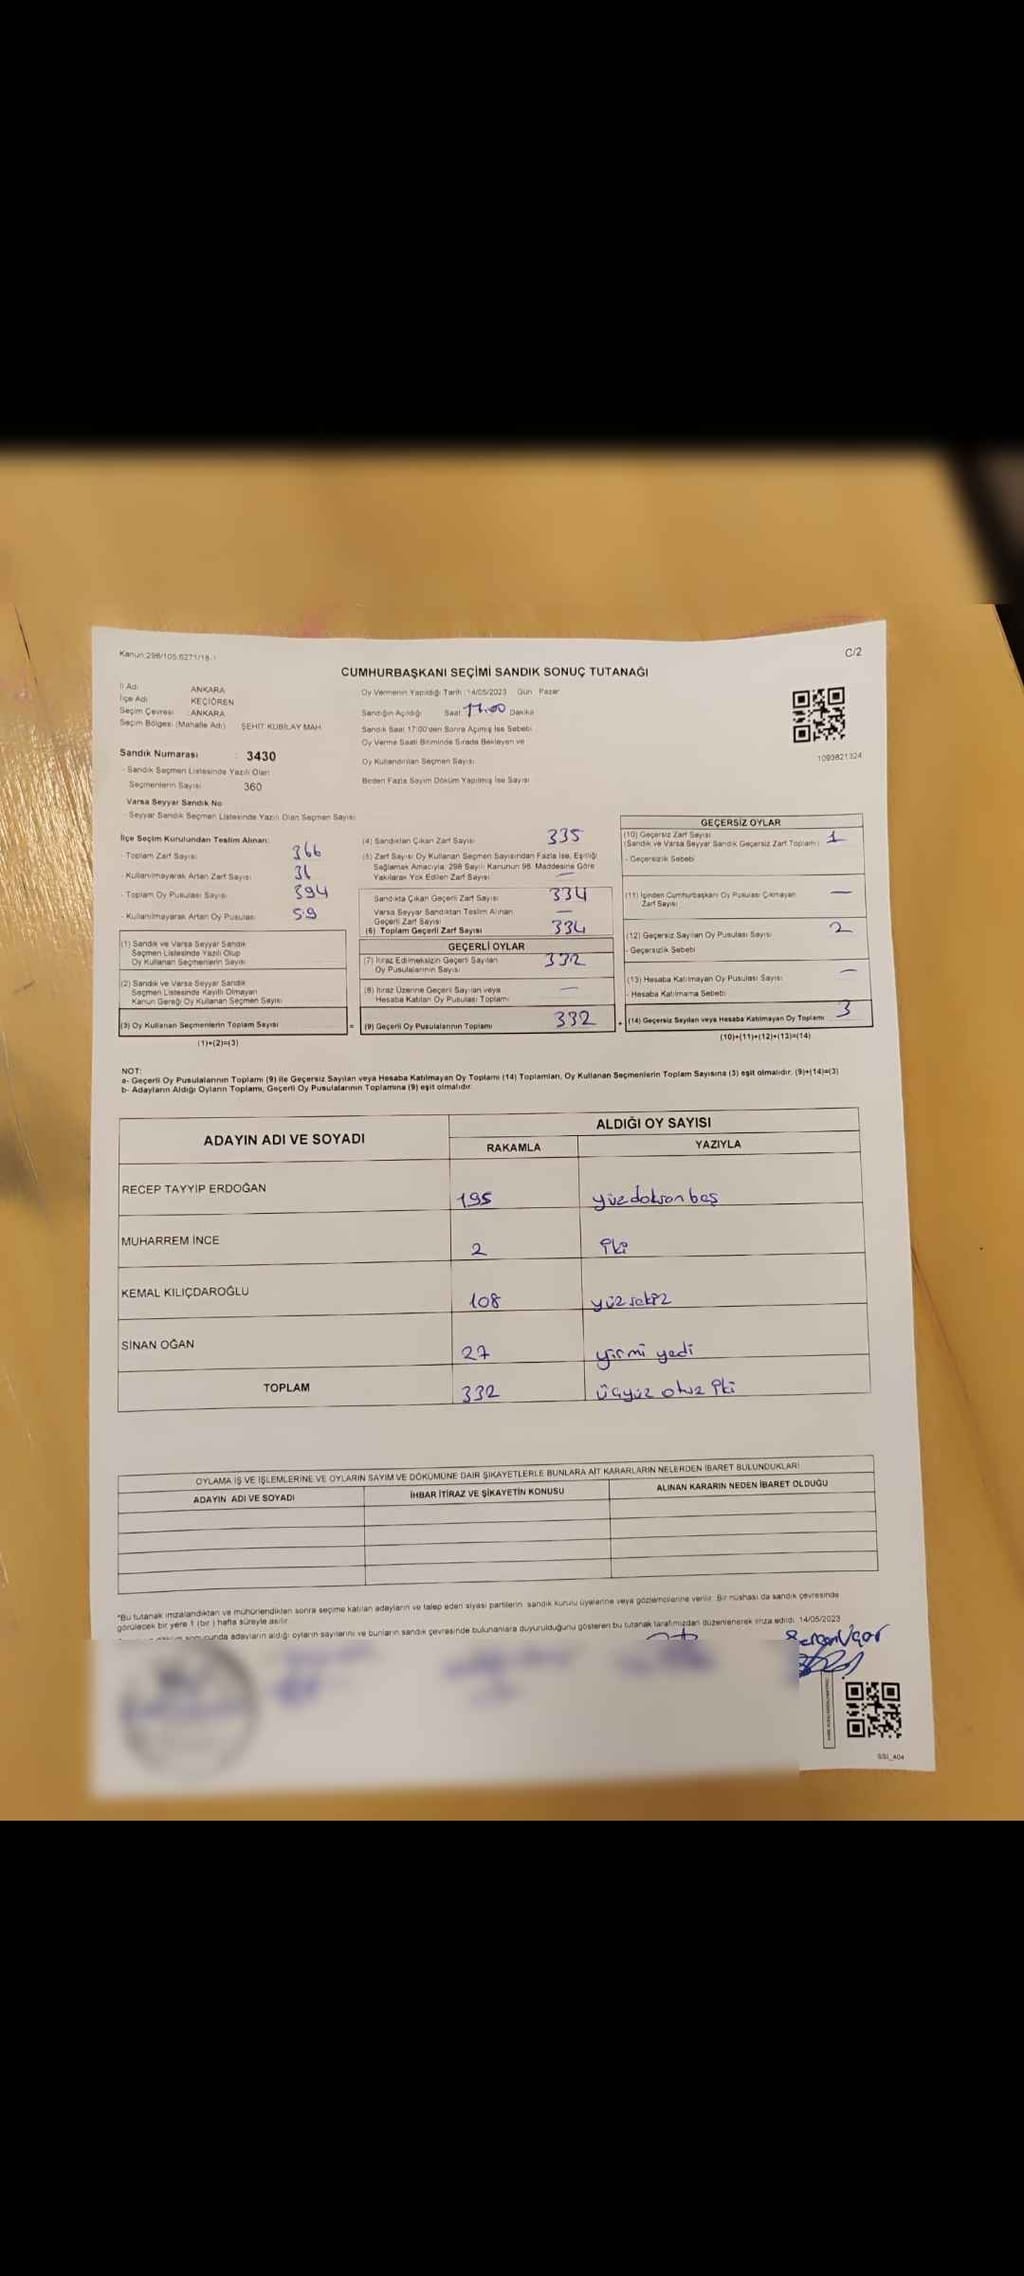 Kanun:298/105,6271/18.1
C/2
CUMHURBAŞKANI SEÇİMİ SANDIK SONUÇ TUTANAĞI
İl Adı ANKARA
İlçe Adı KEÇİÖREN
Seçim Çevresi :ANKARA
Seçim Bölgesi (Mahalle Adı) ŞEHİT KUBİLAY MAH.
Sandık Numarası : 3430
- Sandık Seçmen Listesinde Yazılı Olan
Seçmenlerin Sayısı 360
Varsa Seyyar Sandık No
- Seyyar Sandık Seçmen Listesinde Yazılı Olan Seçmen Sayısı
Oy Vermenin Yapıldığı Tarih :14/05/2023 Gün Pazar
Sandığın Açıldığı Saat 17.00 Dakika
Sandık Saat 17:00'den Sonra Açılmış İse Sebebi
Oy Verme Saati Bitiminde Sırada Bekleyen ve
Oy Kullandırılan Seçmen Sayısı
Birden Fazla Sayım Döküm Yapılmış İse Sayısı
1093821324
İlçe Seçim Kurulundan Teslim Alınan:
- Toplam Zarf Sayısı 366
- Kullanılmayarak Artan Zarf Sayısı 31
- Toplam Oy Pusulası Sayısı 394
- Kullanılmayarak Artan Oy Pusulası 59
(1) Sandık ve Varsa Seyyar Sandık
Seçmen Listesinde Yazılı Olup
Oy Kullanan Seçmenlerin Sayısı
(2) Sandık ve Varsa Seyyar Sandık
Seçmen Listesinde Kayıtlı Olmayan
Kanun Gereği Oy Kullanan Seçmen Sayısı
(3) Oy Kullanan Seçmenlerin Toplam Sayısı
(1)+(2)=(3)
(4) Sandıktan Çıkan Zarf Sayısı 335
(5) Zarf Sayısı Oy Kullanan Seçmen Sayısından Fazla İse, Eşitliği
Sağlamak Amacıyla, 298 Sayılı Kanunun 98. Maddesine Göre
Yakılarak Yok Edilen Zarf Sayısı —
Sandıkta Çıkan Geçerli Zarf Sayısı 334
Varsa Seyyar Sandıktan Teslim Alınan
Geçerli Zarf Sayısı —
(6) Toplam Geçerli Zarf Sayısı 334
GEÇERLİ OYLAR
(7) İtiraz Edilmeksizin Geçerli Sayılan
Oy Pusulalarının Sayısı 332
(8) İtiraz Üzerine Geçerli Sayılan veya
Hesaba Katılan Oy Pusulası Toplamı —
= (9) Geçerli Oy Pusulalarının Toplamı 332
GEÇERSİZ OYLAR
(10) Geçersiz Zarf Sayısı
(Sandık ve Varsa Seyyar Sandık Geçersiz Zarf Toplamı) 1
- Geçersizlik Sebebi
(11) İçinden Cumhurbaşkanı Oy Pusulası Çıkmayan
Zarf Sayısı —
(12) Geçersiz Sayılan Oy Pusulası Sayısı 2
- Geçersizlik Sebebi
(13) Hesaba Katılmayan Oy Pusulası Sayısı —
- Hesaba Katılmama Sebebi
+ (14) Geçersiz Sayılan veya Hesaba Katılmayan Oy Toplamı 3
(10)+(11)+(12)+(13)=(14)
NOT:
a- Geçerli Oy Pusulalarının Toplamı (9) ile Geçersiz Sayılan veya Hesaba Katılmayan Oy Toplamı (14) Toplamları, Oy Kullanan Seçmenlerin Toplam Sayısına (3) eşit olmalıdır. (9)+(14)=(3)
b- Adayların Aldığı Oyların Toplamı, Geçerli Oy Pusulalarının Toplamına (9) eşit olmalıdır.
ADAYIN ADI VE SOYADI ALDIĞI OY SAYISI
RAKAMLA YAZIYLA
RECEP TAYYİP ERDOĞAN 195 yüzdoksanbeş
MUHARREM İNCE 2 iki
KEMAL KILIÇDAROĞLU 108 yüzsekiz
SİNAN OĞAN 27 yirmi yedi
TOPLAM 332 üçyüz otuz iki
OYLAMA İŞ VE İŞLEMLERİNE VE OYLARIN SAYIM VE DÖKÜMÜNE DAİR ŞİKAYETLERLE BUNLARA AİT KARARLARIN NELERDEN İBARET BULUNDUKLARI
ADAYIN ADI VE SOYADI İHBAR İTİRAZ VE ŞİKAYETİN KONUSU ALINAN KARARIN NEDEN İBARET OLDUĞU
*Bu tutanak imzalandıktan ve mühürlendikten sonra seçime katılan adayların ve talep eden siyasi partilerin sandık kurulu üyelerine veya gözlemcilerine verilir. Bir nüshası da sandık çevresinde
görülecek bir yere 1 (bir) hafta süreyle asılır.
sonucunda adayların aldığı oyların sayılarını ve bunların sandık çevresinde bulunanlara duyurulduğunu gösteren bu tutanak tarafımızdan düzenlenerek imza edildi. 14/05/2023
SSİ_404